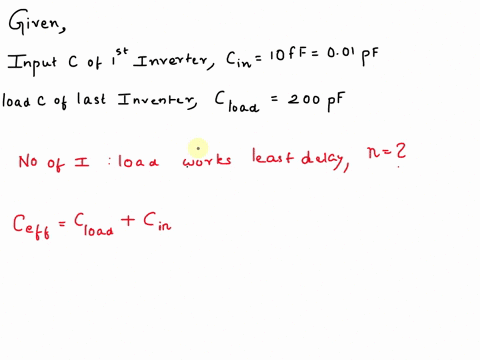 Given,
Input C of 1st Inverter, Cin = 10fF = 0.01 pF
load C of last Inventer, Cload = 200 pF
No of I : load works least delay, n = ?
Ceff = Cload + Cin